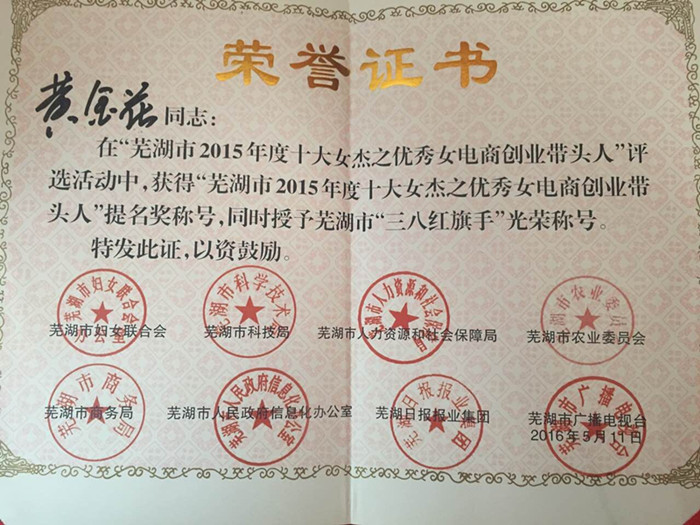 荣誉证书
黄金花同志：
在“芜湖市2015年度十大女杰之优秀女电商创业带头人”评
选活动中，获得“芜湖市2015年度十大女杰之优秀女电商创业带
头人”提名奖称号，同时授予芜湖市“三八红旗手”光荣称号。
特发此证，以资鼓励。
芜湖市妇女联合会 芜湖市科技局 芜湖市人力资源和社会保障局 芜湖市农业委员会
芜湖市商务局 芜湖市人民政府信息化办公室 芜湖日报报业集团 芜湖市广播电视台
2016年5月11日